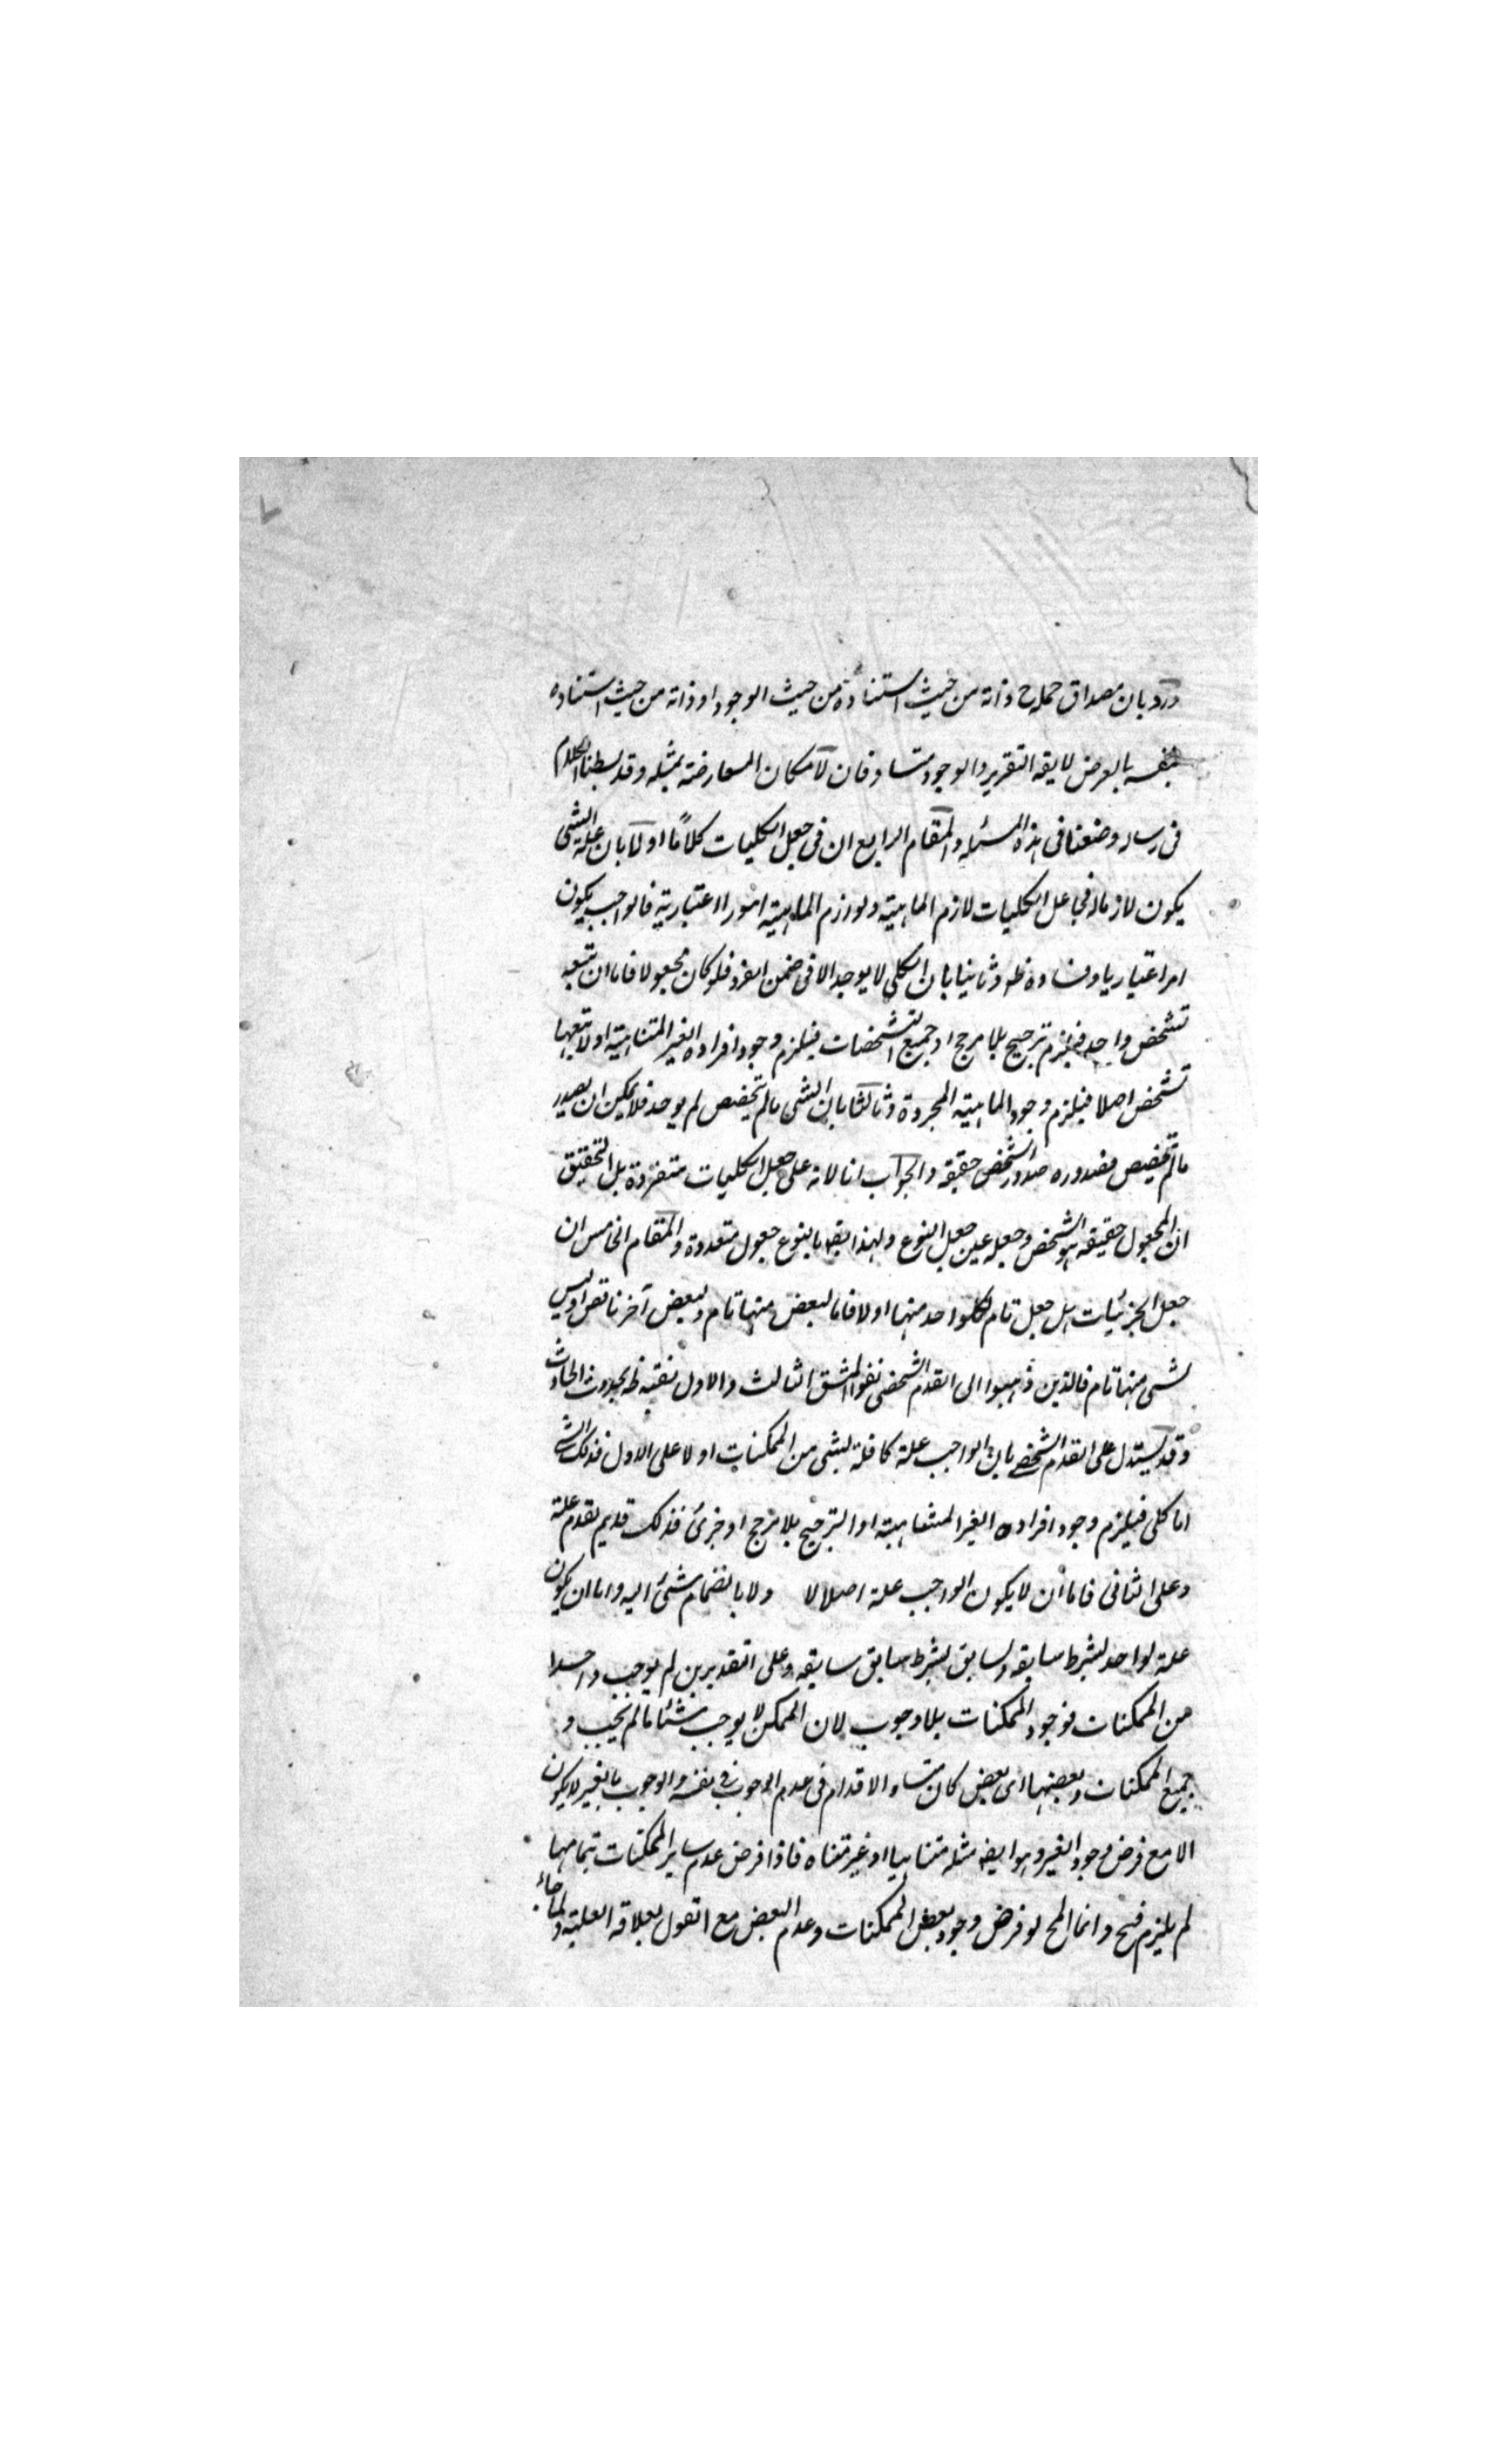 ورد بان مصداق حمله ح ذاته من حيث استناده من حيث الوجود او ذاته من حيث استناده
بنفسه بالعرض لا يقه التقرير والوجود متساوقان لامكان المعارضة بمثله وقد بسطنا الكلام
فى رساله وضعنا فى هذه المسئله والمقام الرابع ان فى جعل الكليات كلاما اولا بان علة الشى
يكون لازما له فجاعل الكليات لازم الماهية ولوازم الماهية امورا اعتبارية فالواجب يكون
امرا اعتباريا وفساده ظه وثانيا بان الكلى لا يوجد الا فى ضمن الفرد فلو كان مجعولا فاما ان تتبعه
تشخص واحد فيلزم ترجيح بلا مرجح او جميع التشخصات فيلزم وجود افراده الغير المتناهية او لا يتبعها
تشخص اصلا فيلزم وجود الماهية المجردة وثالثا بان الشى ما لم يتخصص لم يوجد فلا يمكن ان يصدر
ما لم يتخصص فصدوره صدور الشخص حقيقه والجواب انا لانه على جعل الكليات متفردة بل التحقيق
ان المجعول حقيقه هو الشخص وجعله عين جعل النوع ولهذا يقه بالنوع جعول متعددة والمقام الخامس ان
جعل الجزئيات هل جعل تام لكل واحد منها او لا فاما لبعض منها تام ولبعض آخر ناقص او ليس
لشى منها تام فالذين ذهبوا الى القدم الشخصى نفوا الشق الثالث والاول نفيه ظه بحدوث الحادث
وقد يستدل على القدم الشخصے بان الواجب علة كافلة لشى من الممكنات او لا على الاول فذلك الشى
اما كلى فيلزم وجود افراده الغير المتناهية او الترجيح بلا مرجح او جزئى فذلك قديم بقدم علة
وعلى الثانى فاما ان لا يكون الواجب علة اصلا لا ولا بانضمام شئ اليه واما ان يكون
علة لواحد بشرط سابقه ولسابق بشرط سابق سابقه وعلى التقديرين لم يوجب واحدا
من الممكنات فوجود الممكنات بلا وجوب لان الممكن لا يوجب شئا ما لم يجب و
جميع الممكنات وبعضها اى بعض كان متساو الاقدام فى عدم الوجوب فى نفسه والوجوب بالغير لا يكون
الا مع فرض وجود الغير وهو ايضه مثله متناهيا او غير متناه فاذا فرض عدم ساير الممكنات بتمامها
لم يلزم قبح وانما المح لو فرض وجود بعض الممكنات وعدم البعض مع القول بعلاقه العلية ولما جاء